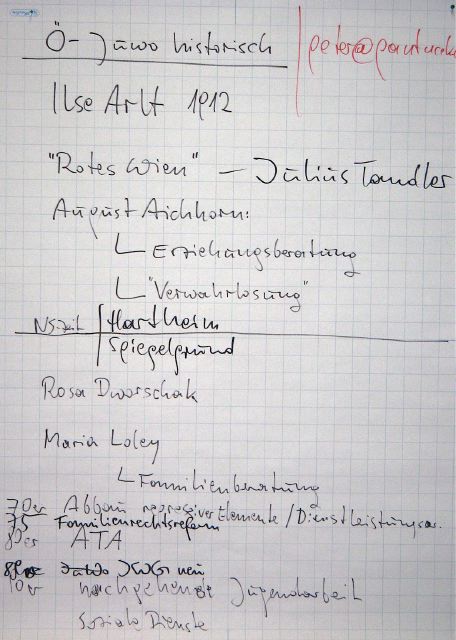 Ö-Juwo historisch
peter@pantucek
Ilse Arlt 1912
"Rotes Wien" - Julius Tandler
August Aichhorn:
Erziehungsberatung
"Verwahrlosung"
NS-Zeit Hartheim
Spiegelgrund
Rosa Dworschak
Maria Loley
Familienberatung
70er Abbau repressiver Elemente / Dienstleistungsor.
75 Familienrechtsreform
80er ATA
JWG neu
nachgehende Jugendarbeit
Soziale Dienste